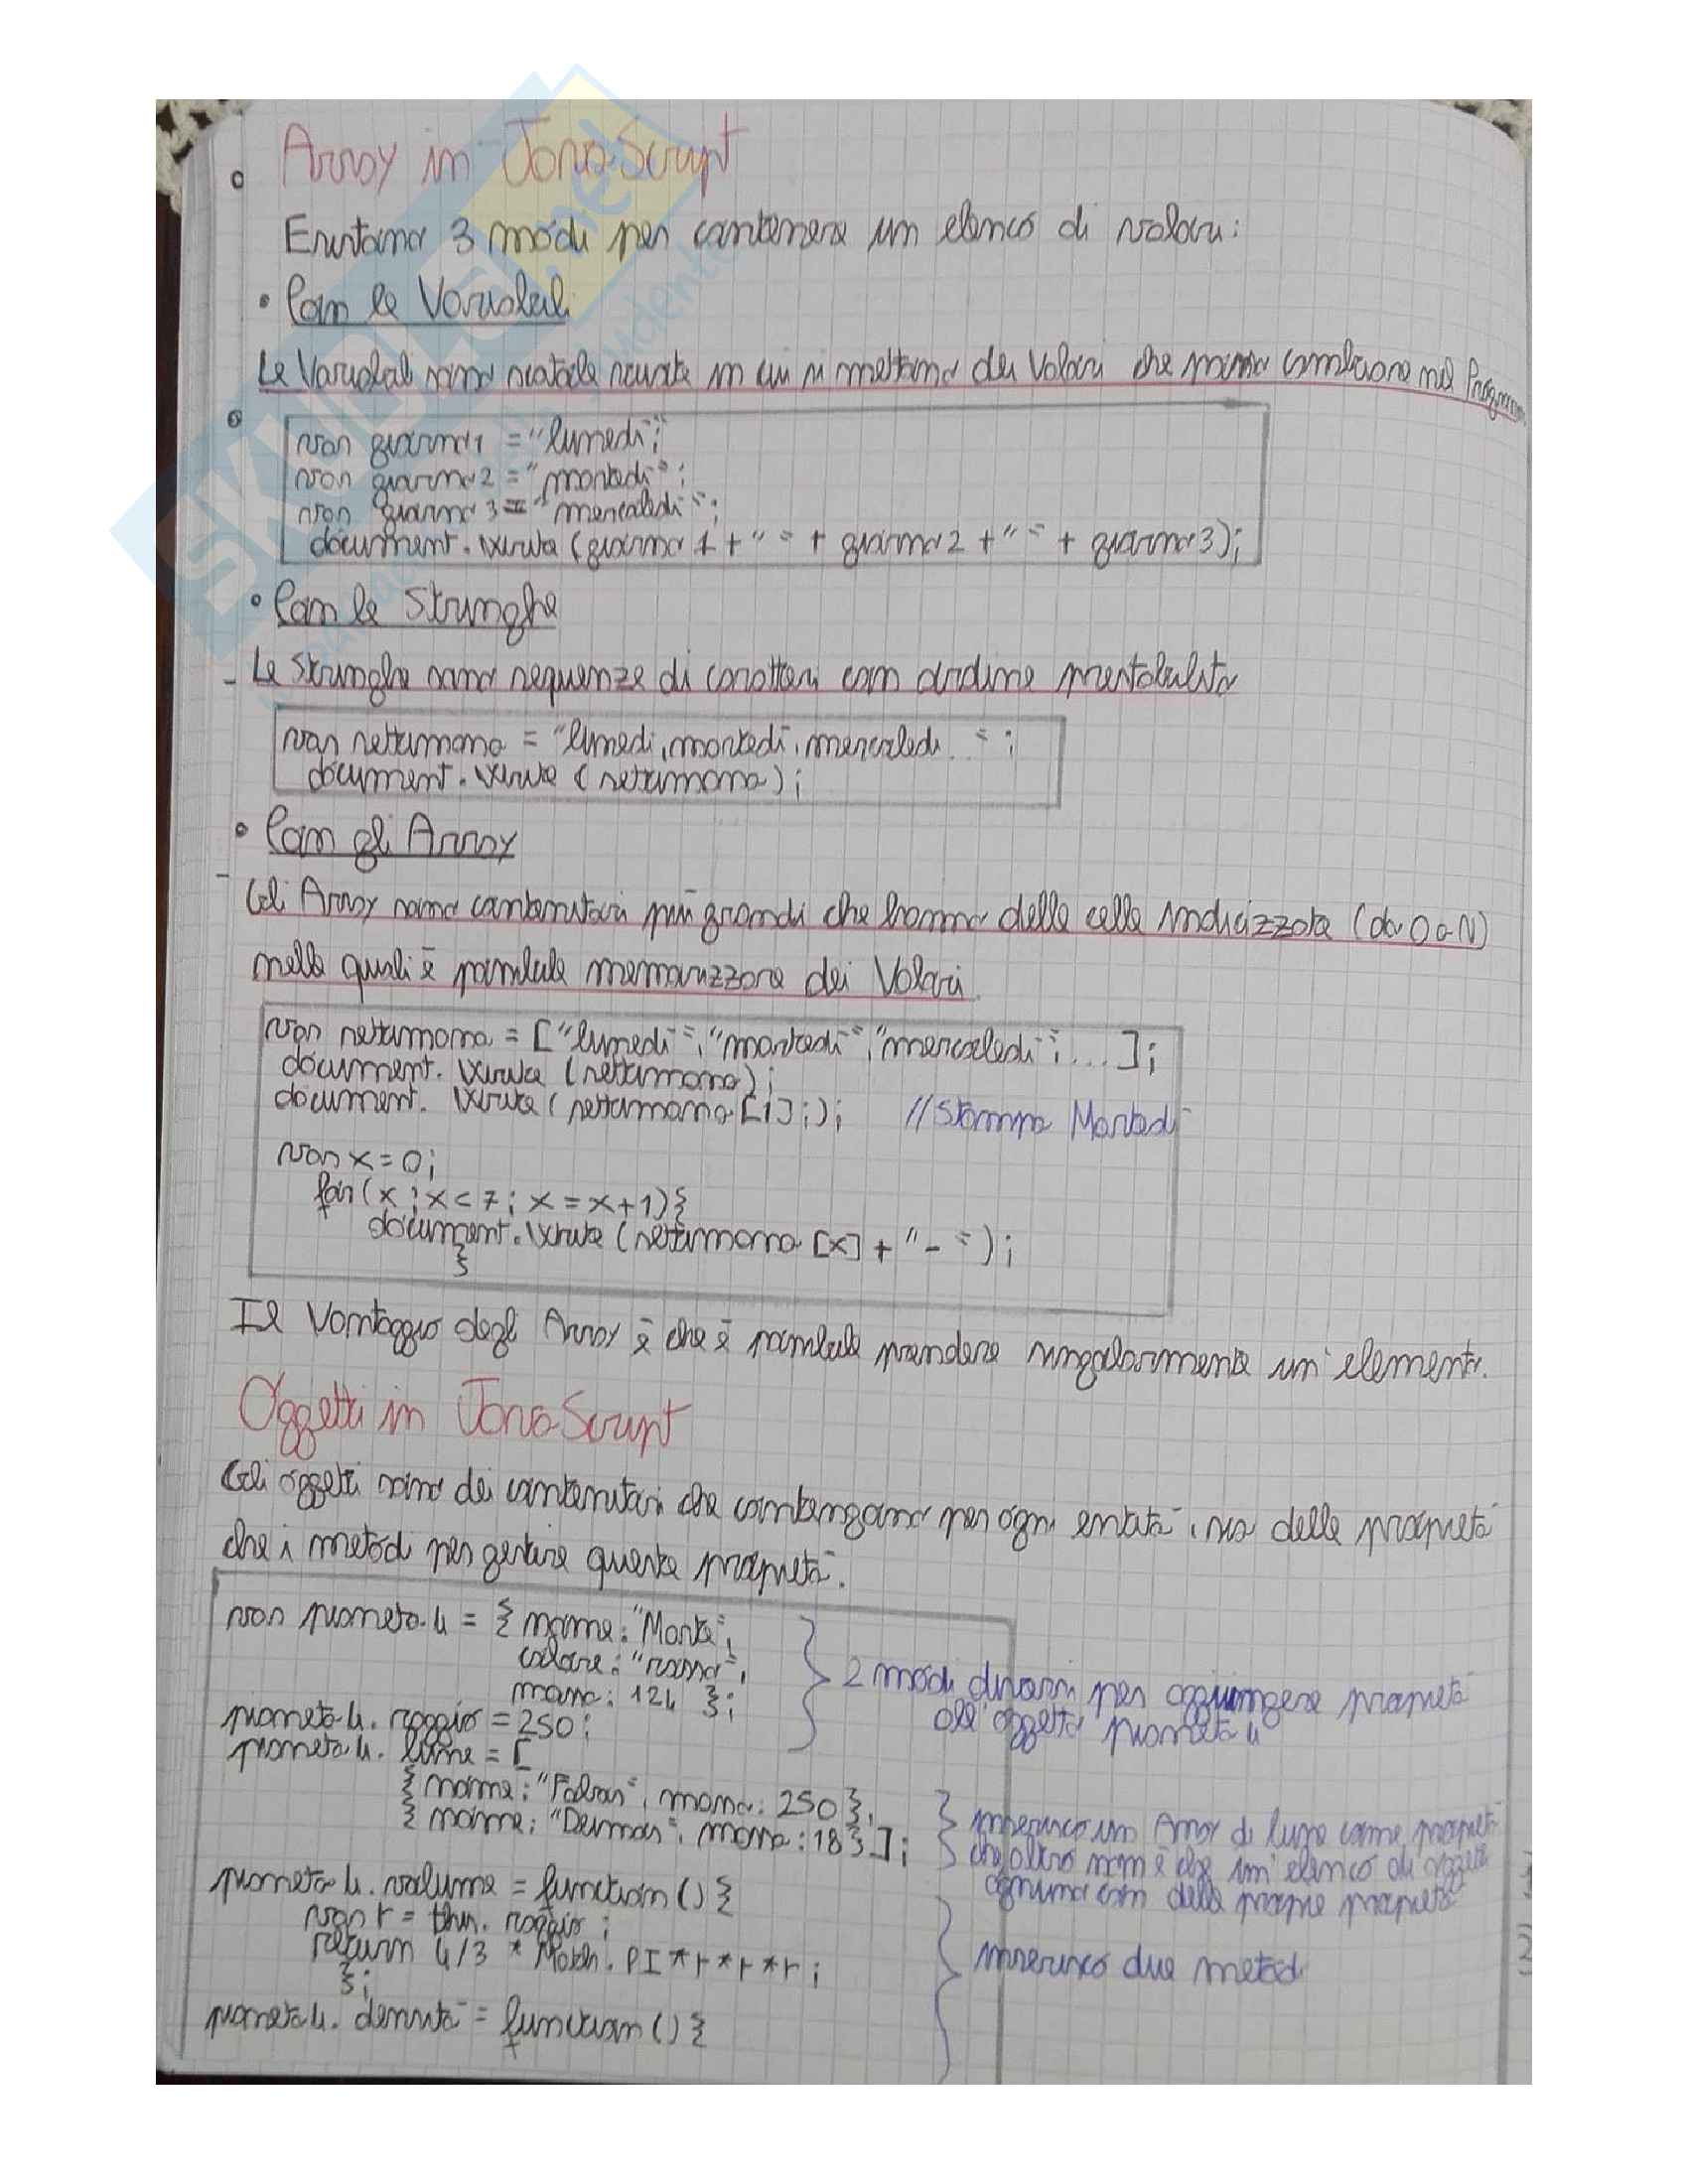 Array in JavaScript
Esistono 3 modi per contenere un elenco di valori:
• Con le Variabili
Le Variabili sono scatole vuote in cui si mettono dei Valori che possono cambiare nel Programma
var giorno1 = "lunedì";
var giorno2 = "martedì";
var giorno3 = "mercoledì";
document.write (giorno1 + " " + giorno2 + " " + giorno3);
• Con le Stringhe
- Le Stringhe sono sequenze di caratteri con ordine prestabilito
var settimana = "lunedì, martedì, mercoledì..";
document.write (settimana);
• Con gli Array
- Gli Array sono contenitori più grandi che hanno delle celle indicizzate (da 0 a N)
nelle quali è possibile memorizzare dei Valori.
var settimana = ["lunedì", "martedì", "mercoledì", ...];
document.write (settimana);
document.write (settimana[1];); //Stampa Martedì
var x=0;
for(x ; x<7; x=x+1){
document.write (settimana[x] + "-");
}
Il Vantaggio degli Array è che è possibile prendere singolarmente un'elemento.
Oggetti in JavaScript
Gli oggetti sono dei contenitori che contengono per ogni entità, sia delle proprietà
che i metodi per gestire queste proprietà.
var pianeta4 = { nome: "Marte",
colore: "rosso",
massa: 124 };
pianeta4.raggio = 250;
2 modi diversi per aggiungere proprietà
all'oggetto pianeta4
pianeta4.lune = [
{ nome: "Fobos", massa: 250 },
{ nome: "Deimos", massa: 18 }];
inserisco un Array di lune come proprietà
che altro non è che un'elenco di oggetti
ognuno con delle proprie proprietà
pianeta4.volume = function () {
var r = this.raggio;
return 4/3 * Math.PI *r*r*r;
};
inserisco due metodi
pianeta4.densità = function () {